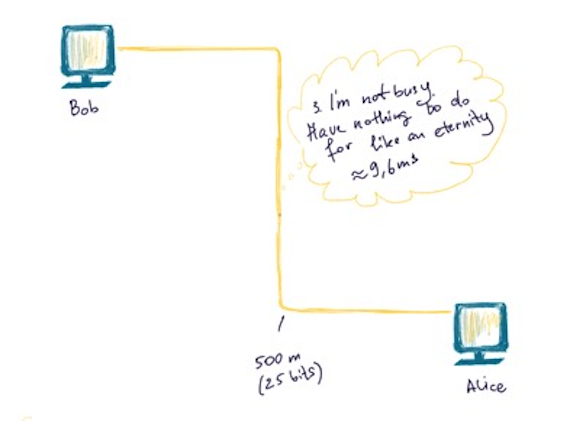 Bob
3. I'm not busy.
Have nothing to do
for like an eternity
≈9,6ms
500 m
(25 bits)
Alice